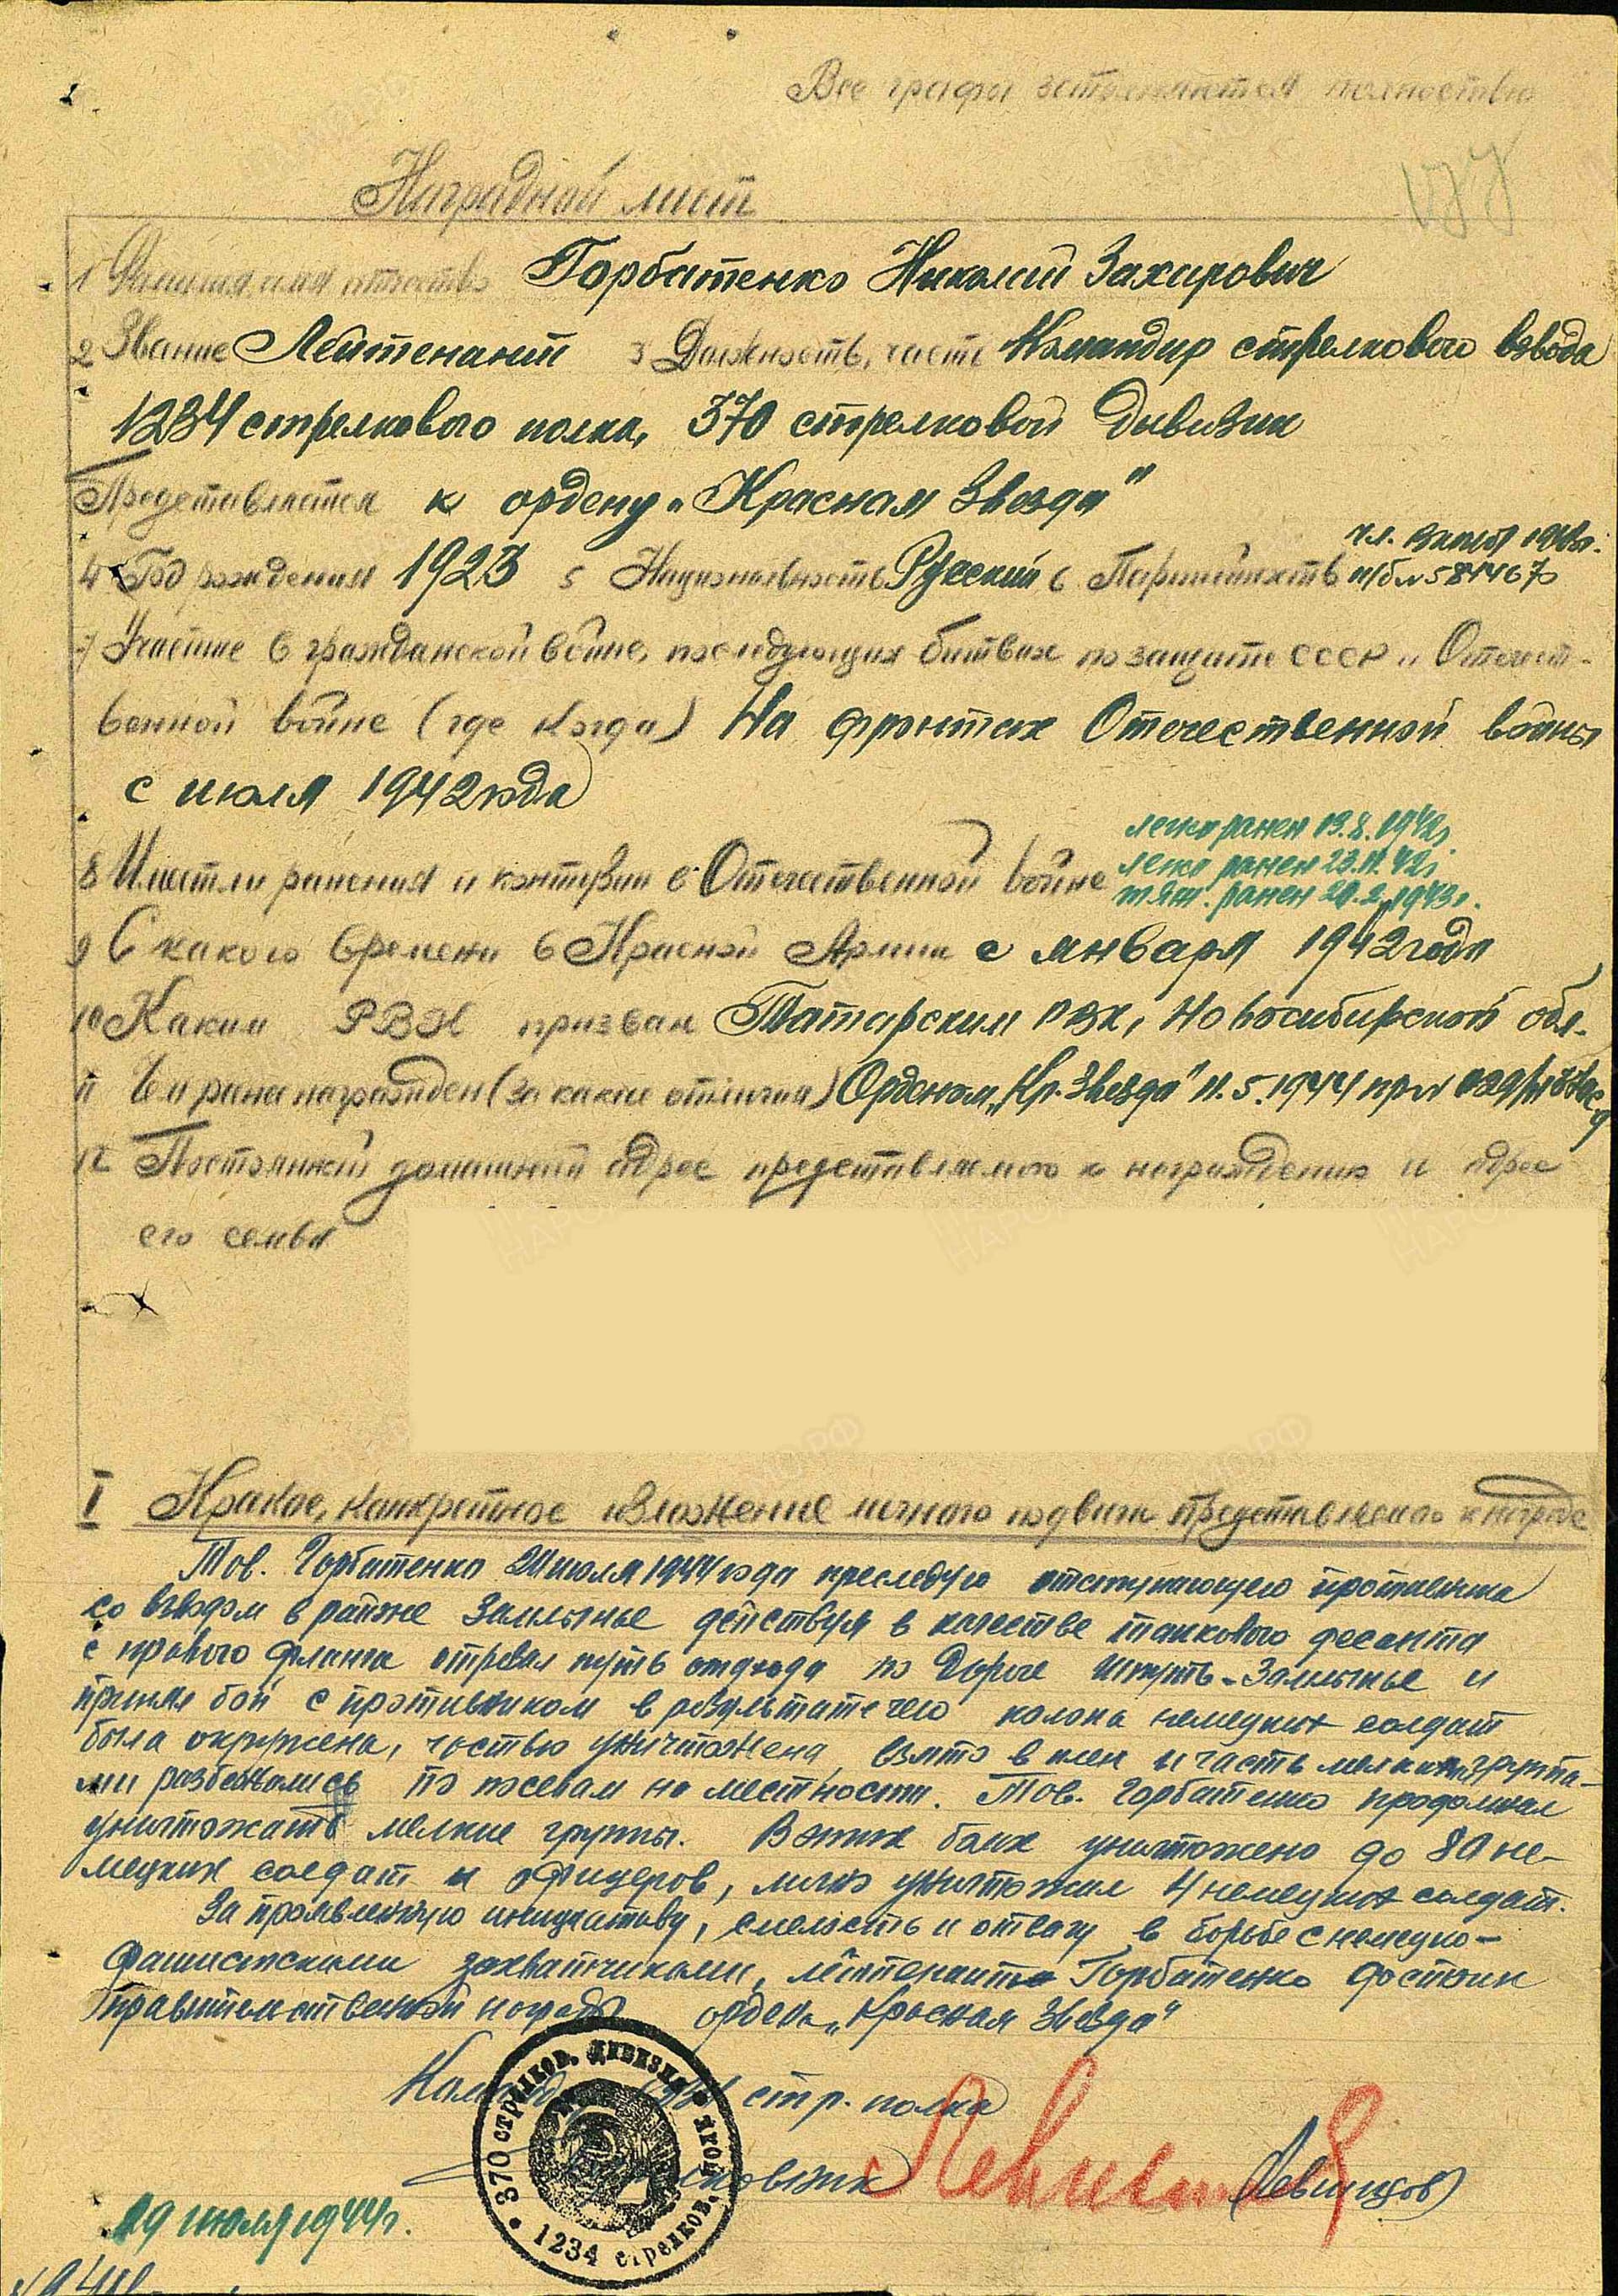 Все графы заполняются полностью
Наградной лист
1 Фамилия, имя отчество Горбатенко Николай Захарович
2 Звание Лейтенант 3 Должность, часть Командир стрелкового взвода
1234 стрелкового полка, 370 стрелковой дивизии
Представляется к ордену „Красная Звезда"
чл. ВЛКСМ
4 Год рождения 1923 5 Национальность Русский 6 Партийность
7 Участие в гражданской войне, последующих битвах по защите СССР и Отечест-
венной войне (где когда) На фронтах Отечественной войны
с июля 1942 года
легко ранен 19.8.1942г
легко ранен 23.11.42г
8 Имеет ли ранения и контузии в Отечественной войне тяж. ранен 20.2.1943г.
9 С какого времени в Красной Армии с января 1942 года
10 Каким РВК призван Татарским РВК, Новосибирской обл.
11 Чем ранее награжден (за какие отличия) Орденом „Кр. Звезда" 11.5.1944 пр
12 Постоянный домашний адрес представляемого к награждению и адрес
его семьи
I Краткое, конкретное изложение личного подвига представляемого к награде
Тов. Горбатенко июля 1944 года преследуя отступающего противника
со взводом в районе Замлынье действуя в качестве танкового десанта
с правого фланга отрезал путь отхода по дороге Штунь-Замлынье и
принял бой с противником в результате чего колона немецких солдат
была окружена, частью уничтожена, взято в плен и часть мелкими группа-
ми разбежались по посевам на местности. Тов. Горбатенко продолжал
уничтожать мелкие группы. В этих боях уничтожено до 80 не-
мецких солдат и офицеров, лично уничтожил 4 немецких солдат.
За проявленную инициативу, смелость и отвагу в борьбе с немецко-
фашистскими захватчиками, лейтенант Горбатенко достоин
правительственной награды орден „Красная Звезда"
Команд 1234 стр. полка
Левинцов
370 стрелков. дивизия
1234 стрелков. полк
29 июля 1944г.